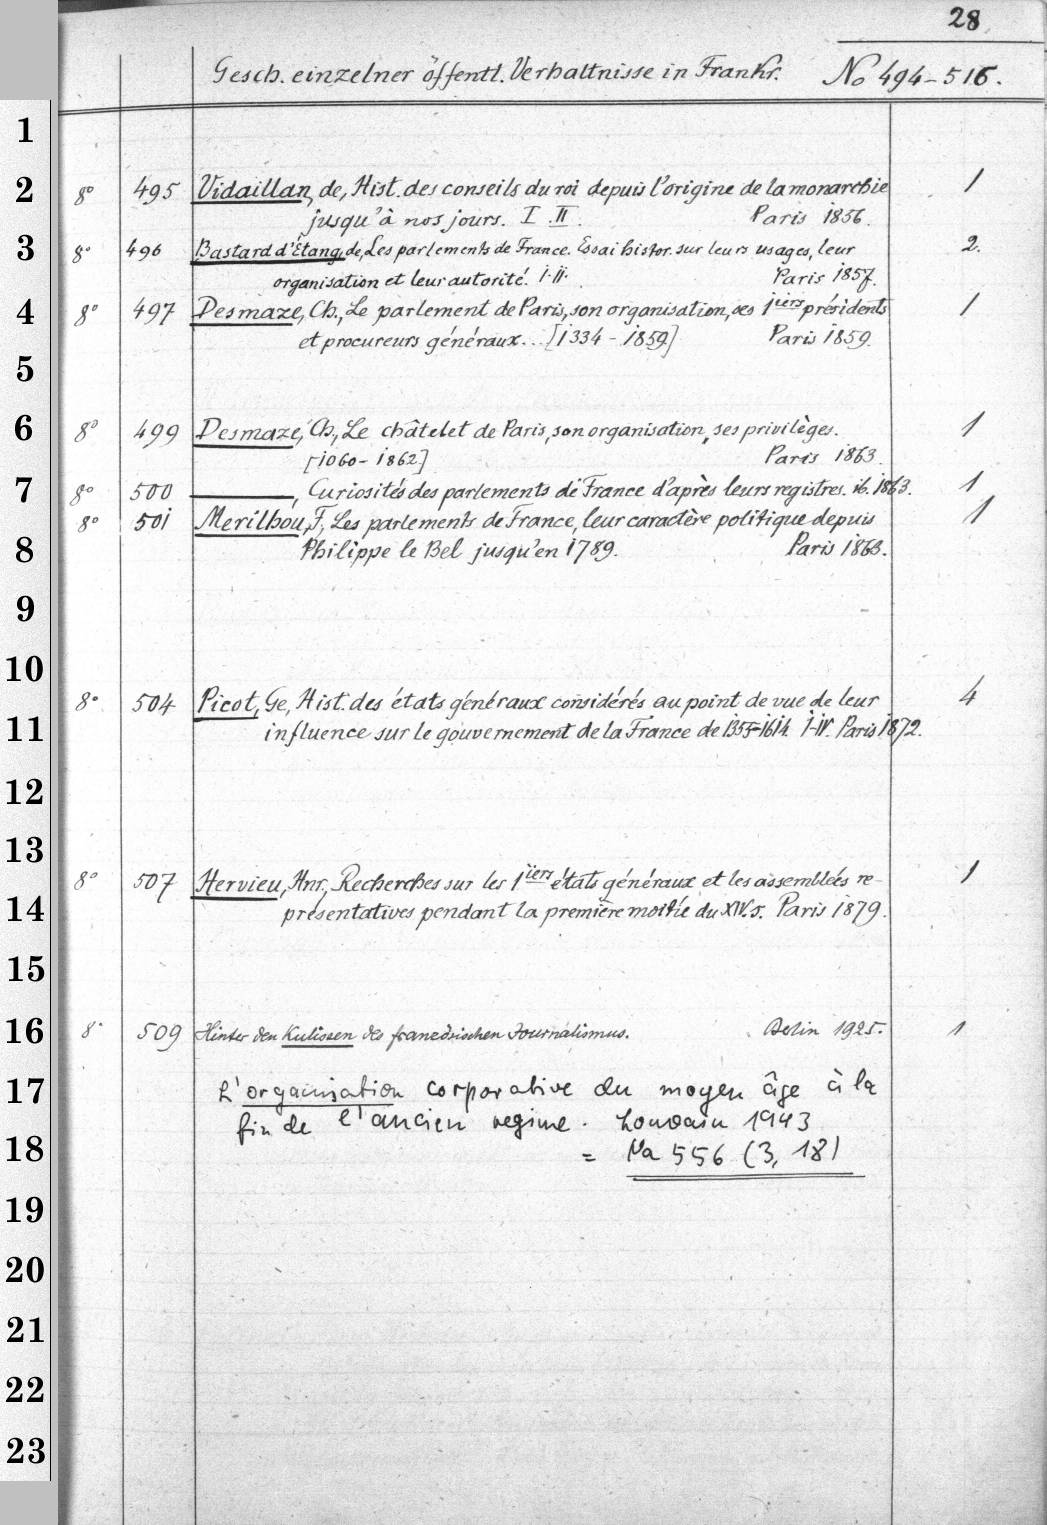 28
Gesch. einzelner öffentl. Verhältnisse in Frankr. No 494-516.
1
2 8° 495 Vidaillan, de, Hist. des conseils du roi depuis l'origine de la monarchie 1
jusqu'à nos jours. I. II. Paris 1856.
3 8° 496 Bastard d'Étang, de, Les parlements de France. Essai histor. sur leurs usages, leur 2.
organisation et leur autorité. I-II. Paris 1857.
4 8° 497 Desmaze, Ch., Le parlement de Paris, son organisation, ses 1iers présidents 1
et procureurs généraux... [1334-1859] Paris 1859.
5
6 8° 499 Desmaze, Ch., Le châtelet de Paris, son organisation, ses privilèges. 1
[1060-1862] Paris 1863.
7 8° 500 ———, Curiosités des parlements de France d'après leurs registres. ib. 1863. 1
8° 501 Merilhou, F., Les parlements de France, leur caractère politique depuis 1
8 Philippe le Bel jusqu'en 1789. Paris 1863.
9
10
8° 504 Picot, Ge, Hist. des états généraux considérés au point de vue de leur 4
11 influence sur le gouvernement de la France de 1355-1614. I-IV. Paris 1872.
12
13
8° 507 Hervieu, Hnr., Recherches sur les 1iers états généraux et les assemblées re- 1
14 présentatives pendant la première moitié du XIV. s. Paris 1879.
15
16 8° 509 Hinter den Kulissen des französischen Journalismus. Berlin 1925. 1
17 L'organisation corporative du moyen âge à la
fin de l'ancien regime. Louvain 1943
18 = Na 556 (3, 18)
19
20
21
22
23